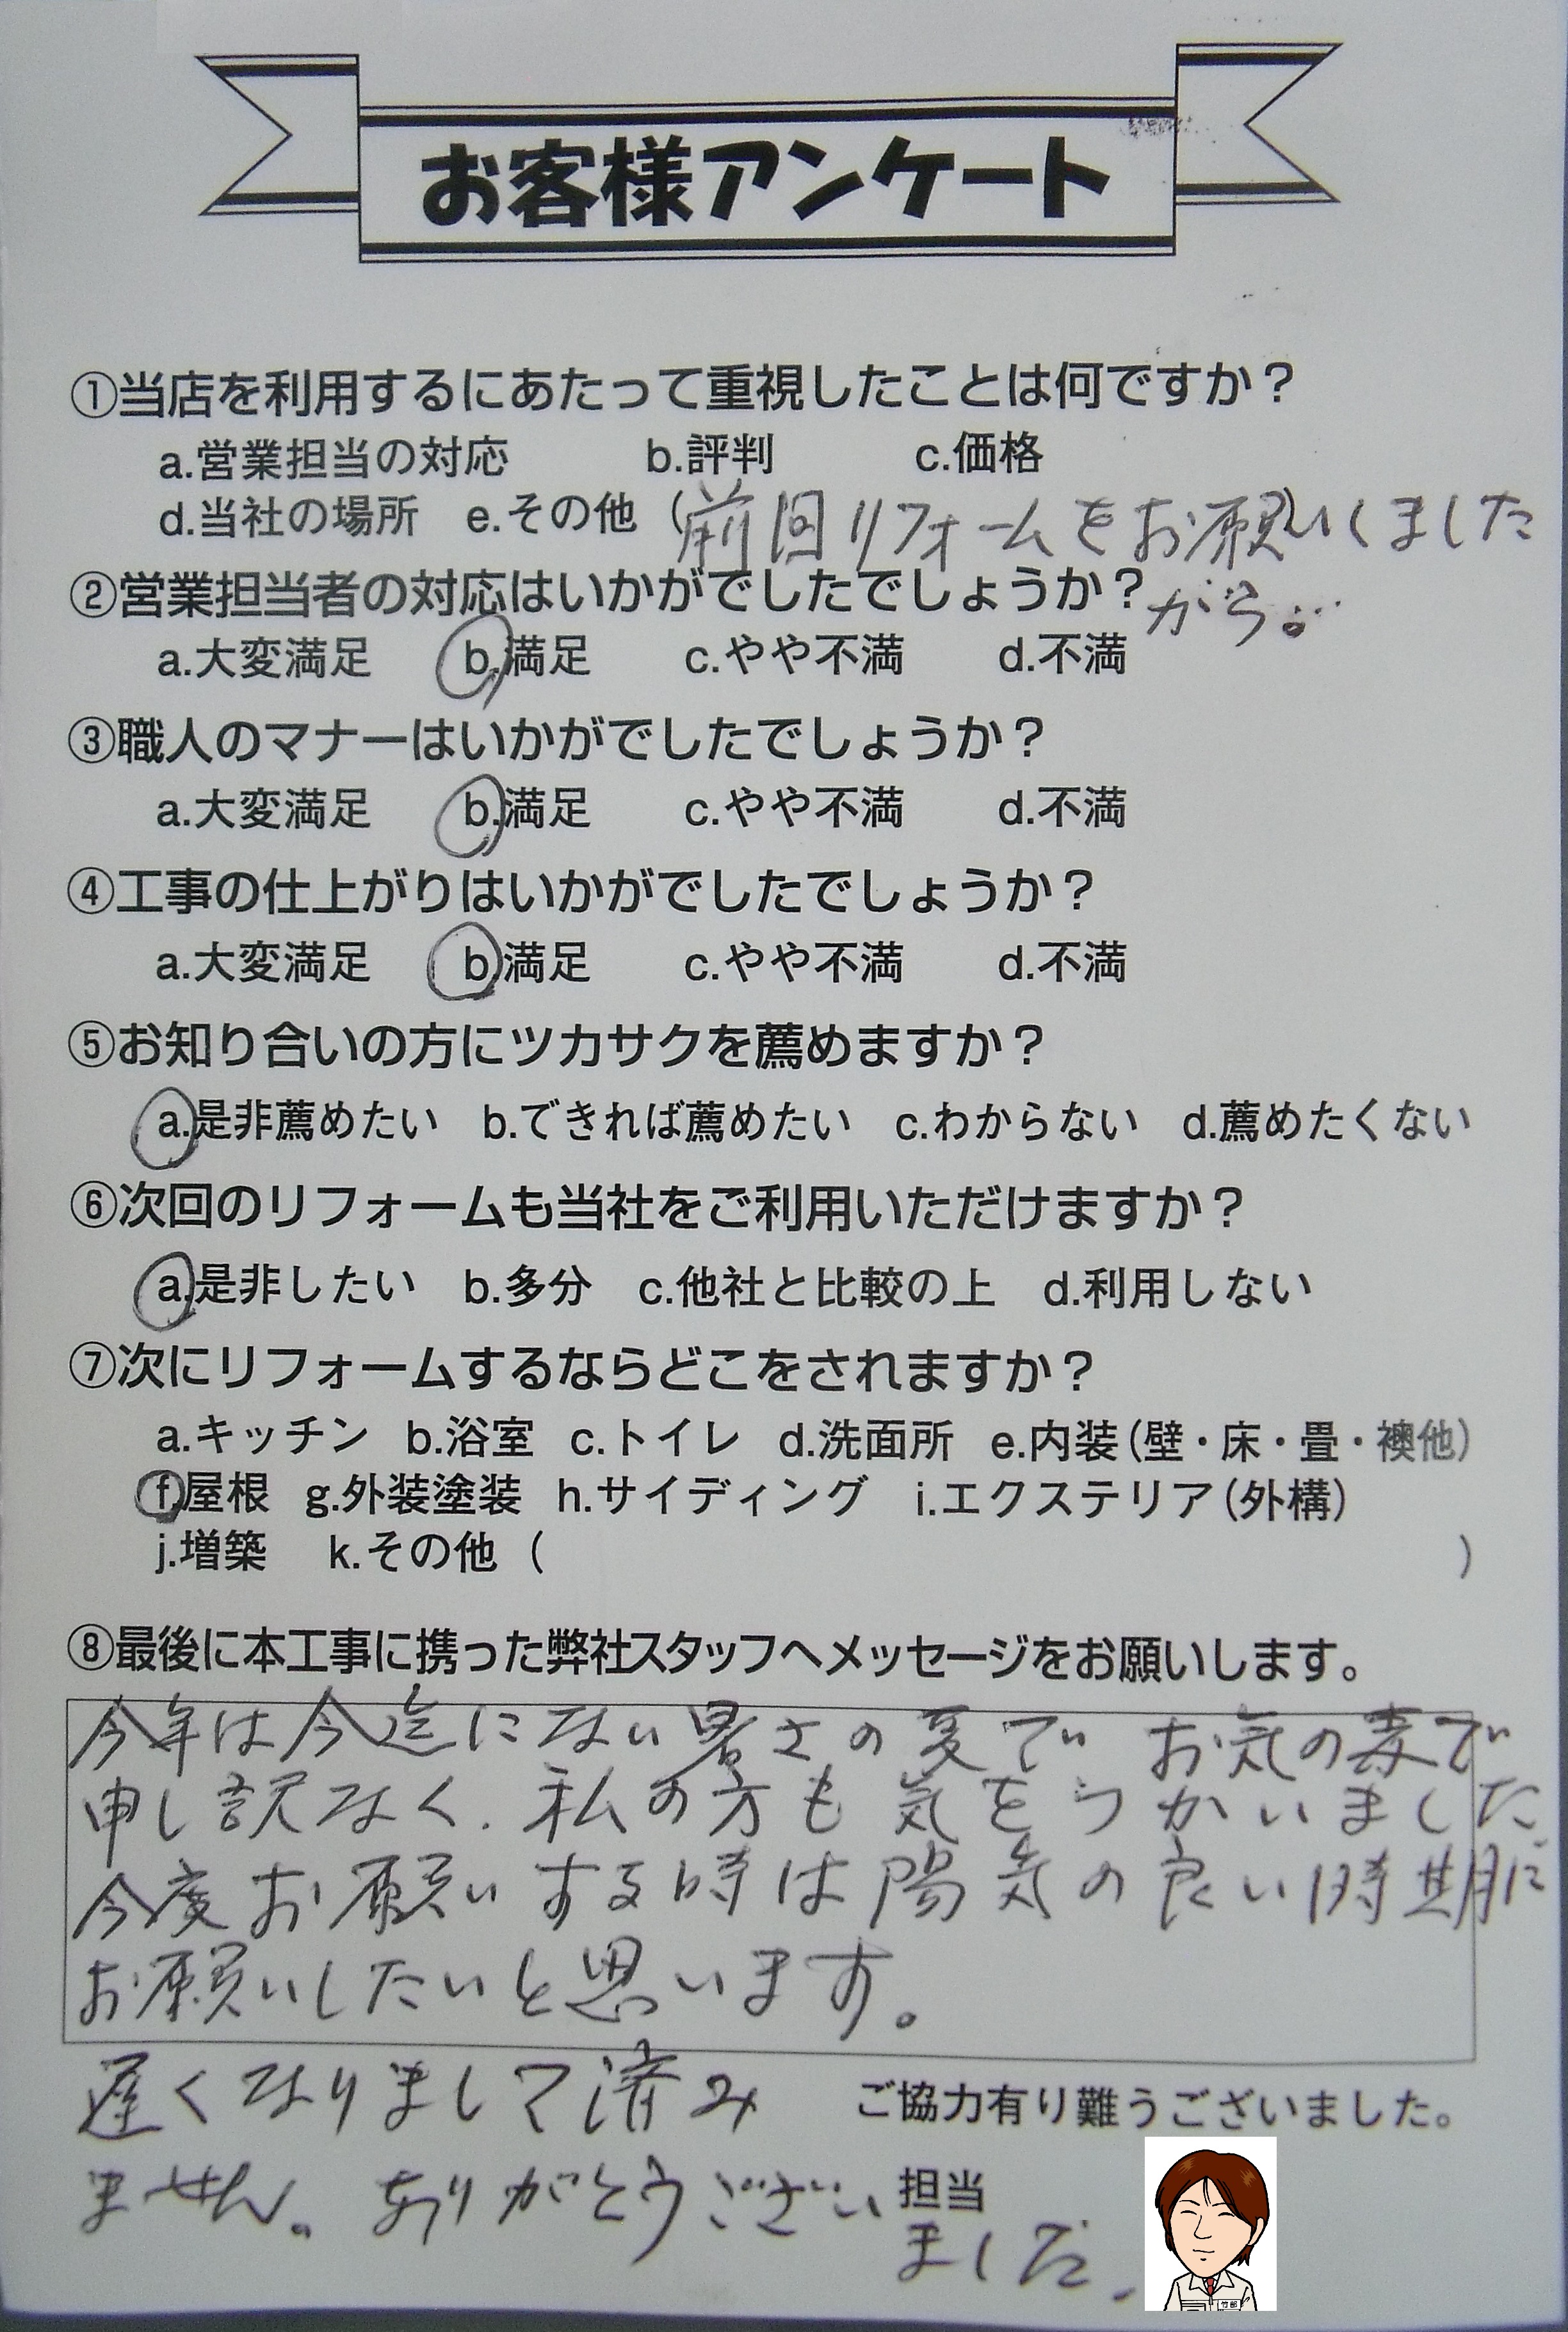 お客様アンケート
①当店を利用するにあたって重視したことは何ですか？
a.営業担当の対応 b.評判 c.価格
d.当社の場所 e.その他（前回リフォームをお願いしました
から。
②営業担当者の対応はいかがでしたでしょうか？
a.大変満足 b.満足 c.やや不満 d.不満
③職人のマナーはいかがでしたでしょうか？
a.大変満足 b.満足 c.やや不満 d.不満
④工事の仕上がりはいかがでしたでしょうか？
a.大変満足 b.満足 c.やや不満 d.不満
⑤お知り合いの方にツカサクを薦めますか？
a.是非薦めたい b.できれば薦めたい c.わからない d.薦めたくない
⑥次回のリフォームも当社をご利用いただけますか？
a.是非したい b.多分 c.他社と比較の上 d.利用しない
⑦次にリフォームするならどこをされますか？
a.キッチン b.浴室 c.トイレ d.洗面所 e.内装（壁・床・畳・襖他）
f.屋根 g.外装塗装 h.サイディング i.エクステリア（外構）
j.増築 k.その他（ ）
⑧最後に本工事に携った弊社スタッフへメッセージをお願いします。
今年は今迄にない暑さの夏で お気の毒で
申し訳なく、私の方も気をつかいました
今度お願いする時は陽気の良い時期に
お願いしたいと思います。
遅くなりまして済み
ません。ありがとうござい
ました。
ご協力有り難うございました。
担当
竹部